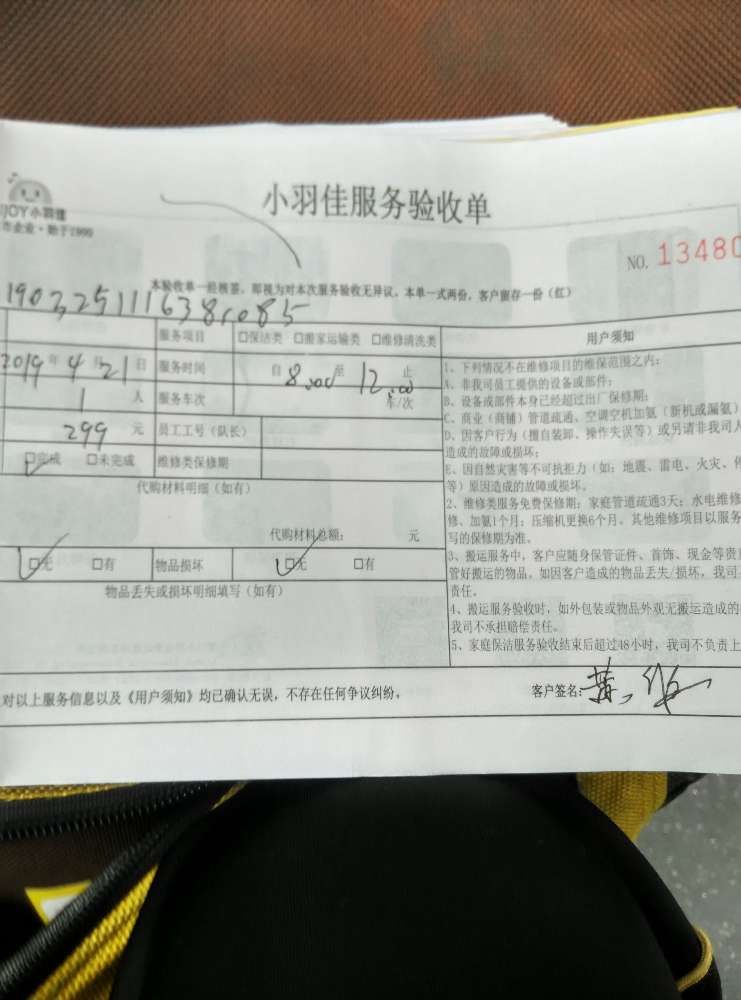 小羽佳服务验收单
JOY小羽佳
市企业·始于1990
NO. 13480
本验收单一经核签，即视为对本次服务验收无异议。本单一式两份，客户留存一份（红）
服务项目 □保洁类 □搬家运输类 □维修清洗类
2019年4月21日 服务时间 自8:00至12:00止
1人 服务车次 车/次
299元 员工工号（队长）
□完成 □未完成 维修类保修期
代购材料明细（如有）
代购材料总额： 元
□无 □有 物品损坏 □无 □有
物品丢失或损坏明细填写（如有）
用户须知
1、下列情况不在维修项目的维保范围之内：
A、非我司员工提供的设备或部件；
B、设备或部件本身已经超过出厂保修期；
C、商业（商铺）管道疏通、空调空机加氨（新机或漏氨）
D、因客户行为（擅自装卸、操作失误等）或另请非我司人
造成的故障或损坏；
E、因自然灾害等不可抗拒力（如：地震、雷电、火灾、
等）原因造成的故障或损坏。
2、维修类服务免费保修期：家庭管道疏通3天；水电维修
修、加氨1个月；压缩机更换6个月。其他维修项目以服务
写的保修期为准。
3、搬运服务中，客户应随身保管证件、首饰、现金等贵
管好搬运的物品。如因客户造成的物品丢失/损坏，我司
责任。
4、搬运服务验收时，如外包装或物品外观无搬运造成的
我司不承担赔偿责任。
5、家庭保洁服务验收结束后超过48小时，我司不负责上
对以上服务信息以及《用户须知》均已确认无误，不存在任何争议纠纷，
客户签名：